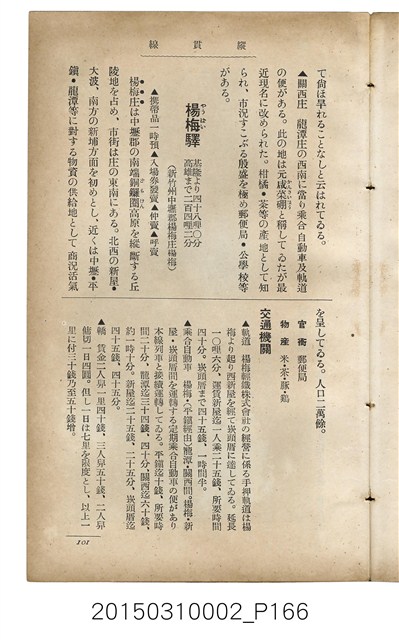 縱貫線
て尙ほ旱れることなしと云はれてゐる。
▲關西庄 龍潭庄の西南に當り乘合自動車及軌道
の便がある。此の地は元咸菜硼と稱してゐたが最
近現名に改められた。柑橘・茶等の產地として知
られ、市況すこぶる殷盛を極め郵便局・公學校等
がある。
楊梅驛
やうばい
基隆より四十八哩〇分
高雄まで二百四哩二分
(新竹州中壢郡楊梅庄楊梅)
▲攜帶品一時預▲入場券發賣▲仲賣▲呼賣
楊梅庄は中壢郡の南端銅鑼圈高原を縱斷する丘
陵地を占め、市街は庄の東南にある。北西の新屋・
大波、南方の新埔方面を初めとし、近くは中壢・平
鎭・龍潭等に對する物資の供給地として商況活氣
を呈してゐる。人口二萬餘。
官衙 郵便局
物產 米・茶・豚・鷄
交通機關
▲軌道 楊梅輕鐵株式會社の經營に係る手押軌道は楊
梅より起り西新屋を經て崁頭厝に達してゐる。延長
一〇哩六分、運賃新屋迄一人乘二十五錢、所要時間
四十分。崁頭厝まで四十五錢、一時間半。
▲乘合自動車 楊梅・平鎭經由・龍潭・關西間。楊梅・新
屋・崁頭厝間を運轉する定期乘合自動車の便があり
本線列車と接續運轉してゐる。平鎭迄十錢、所要時
間二十分、龍潭迄三十四錢、四十分、關西迄六十錢、
約一時十分。新屋迄二十五錢、二十五分、崁頭厝迄
四十五錢、四十五分。
▲轎 賃金二人舁一里四十錢、三人舁五十錢、二人舁
傭切一日四圓。但し一日は七里を限度とし、以上一
里に付三十錢乃至五十錢增。
101
20150310002_P166